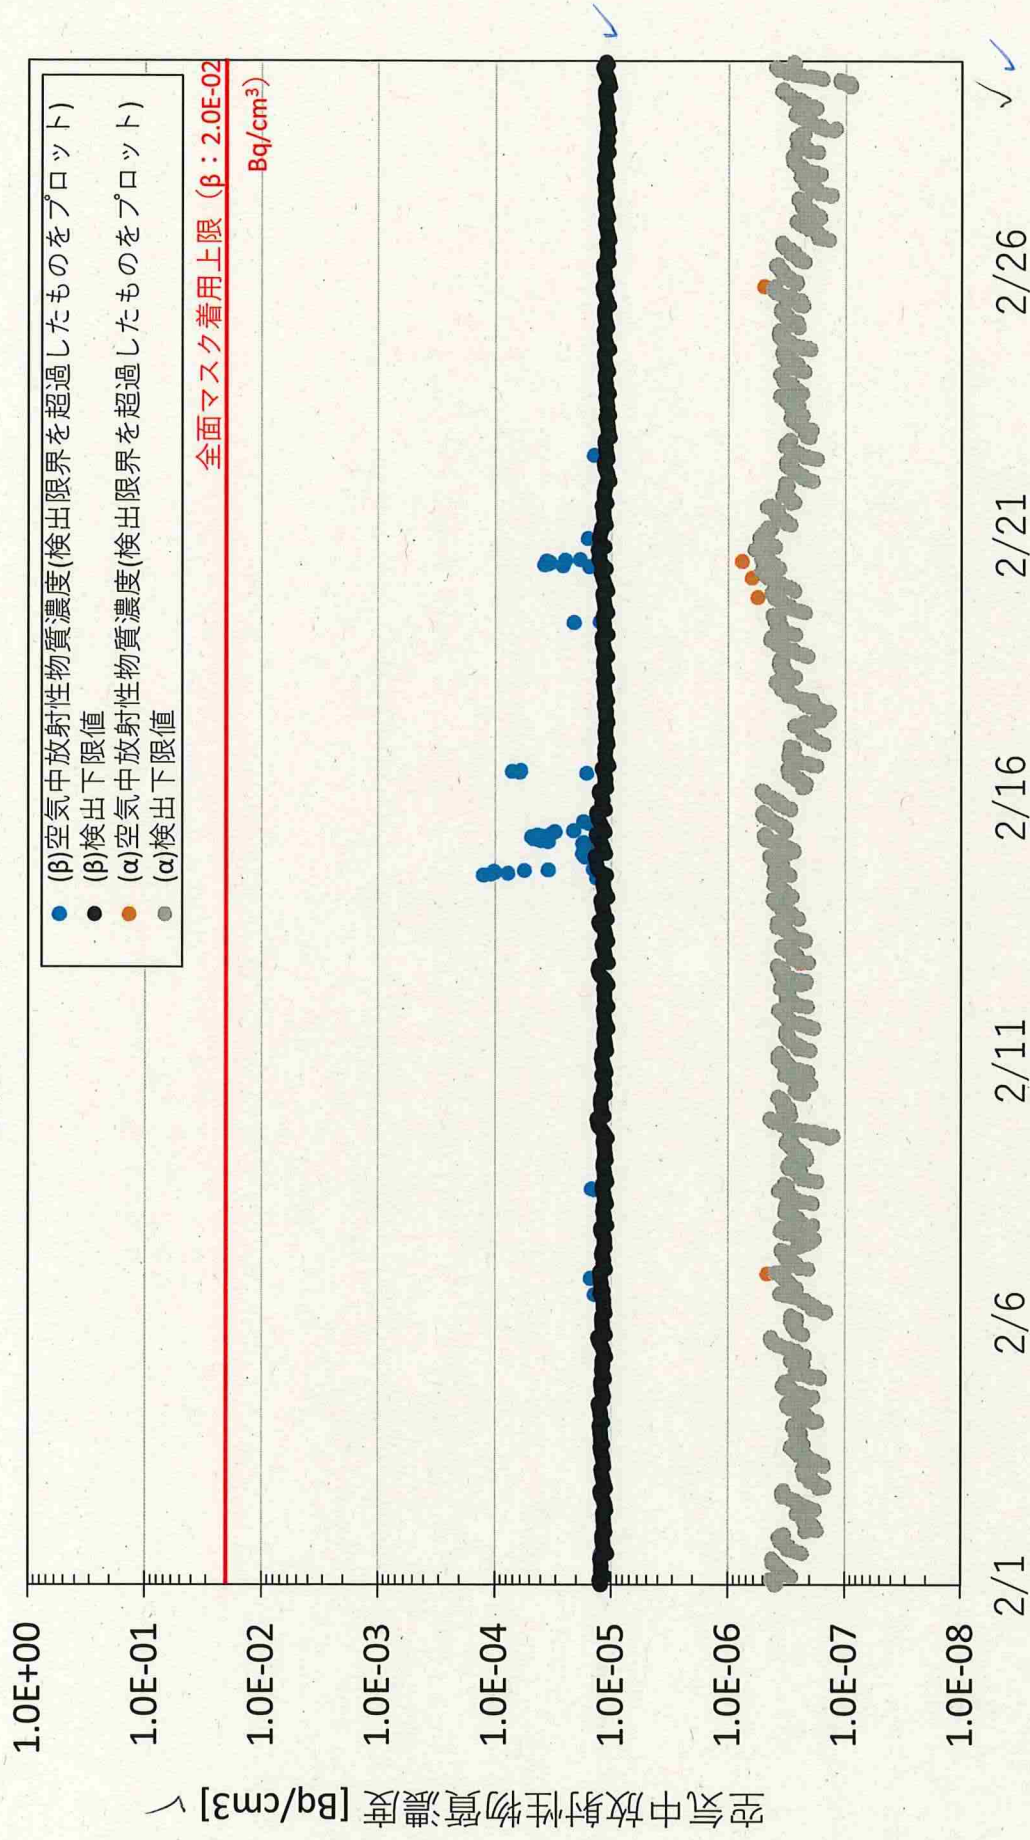 空気中放射性物質濃度 [Bq/cm3]
1.0E+00
1.0E-01
1.0E-02
1.0E-03
1.0E-04
1.0E-05
1.0E-06
1.0E-07
1.0E-08
(β)空気中放射性物質濃度(検出限界を超過したものをプロット)
(β)検出下限値
(α)空気中放射性物質濃度(検出限界を超過したものをプロット)
(α)検出下限値
全面マスク着用上限（β：2.0E-02
Bq/cm³）
2/1
2/6
2/11
2/16
2/21
2/26